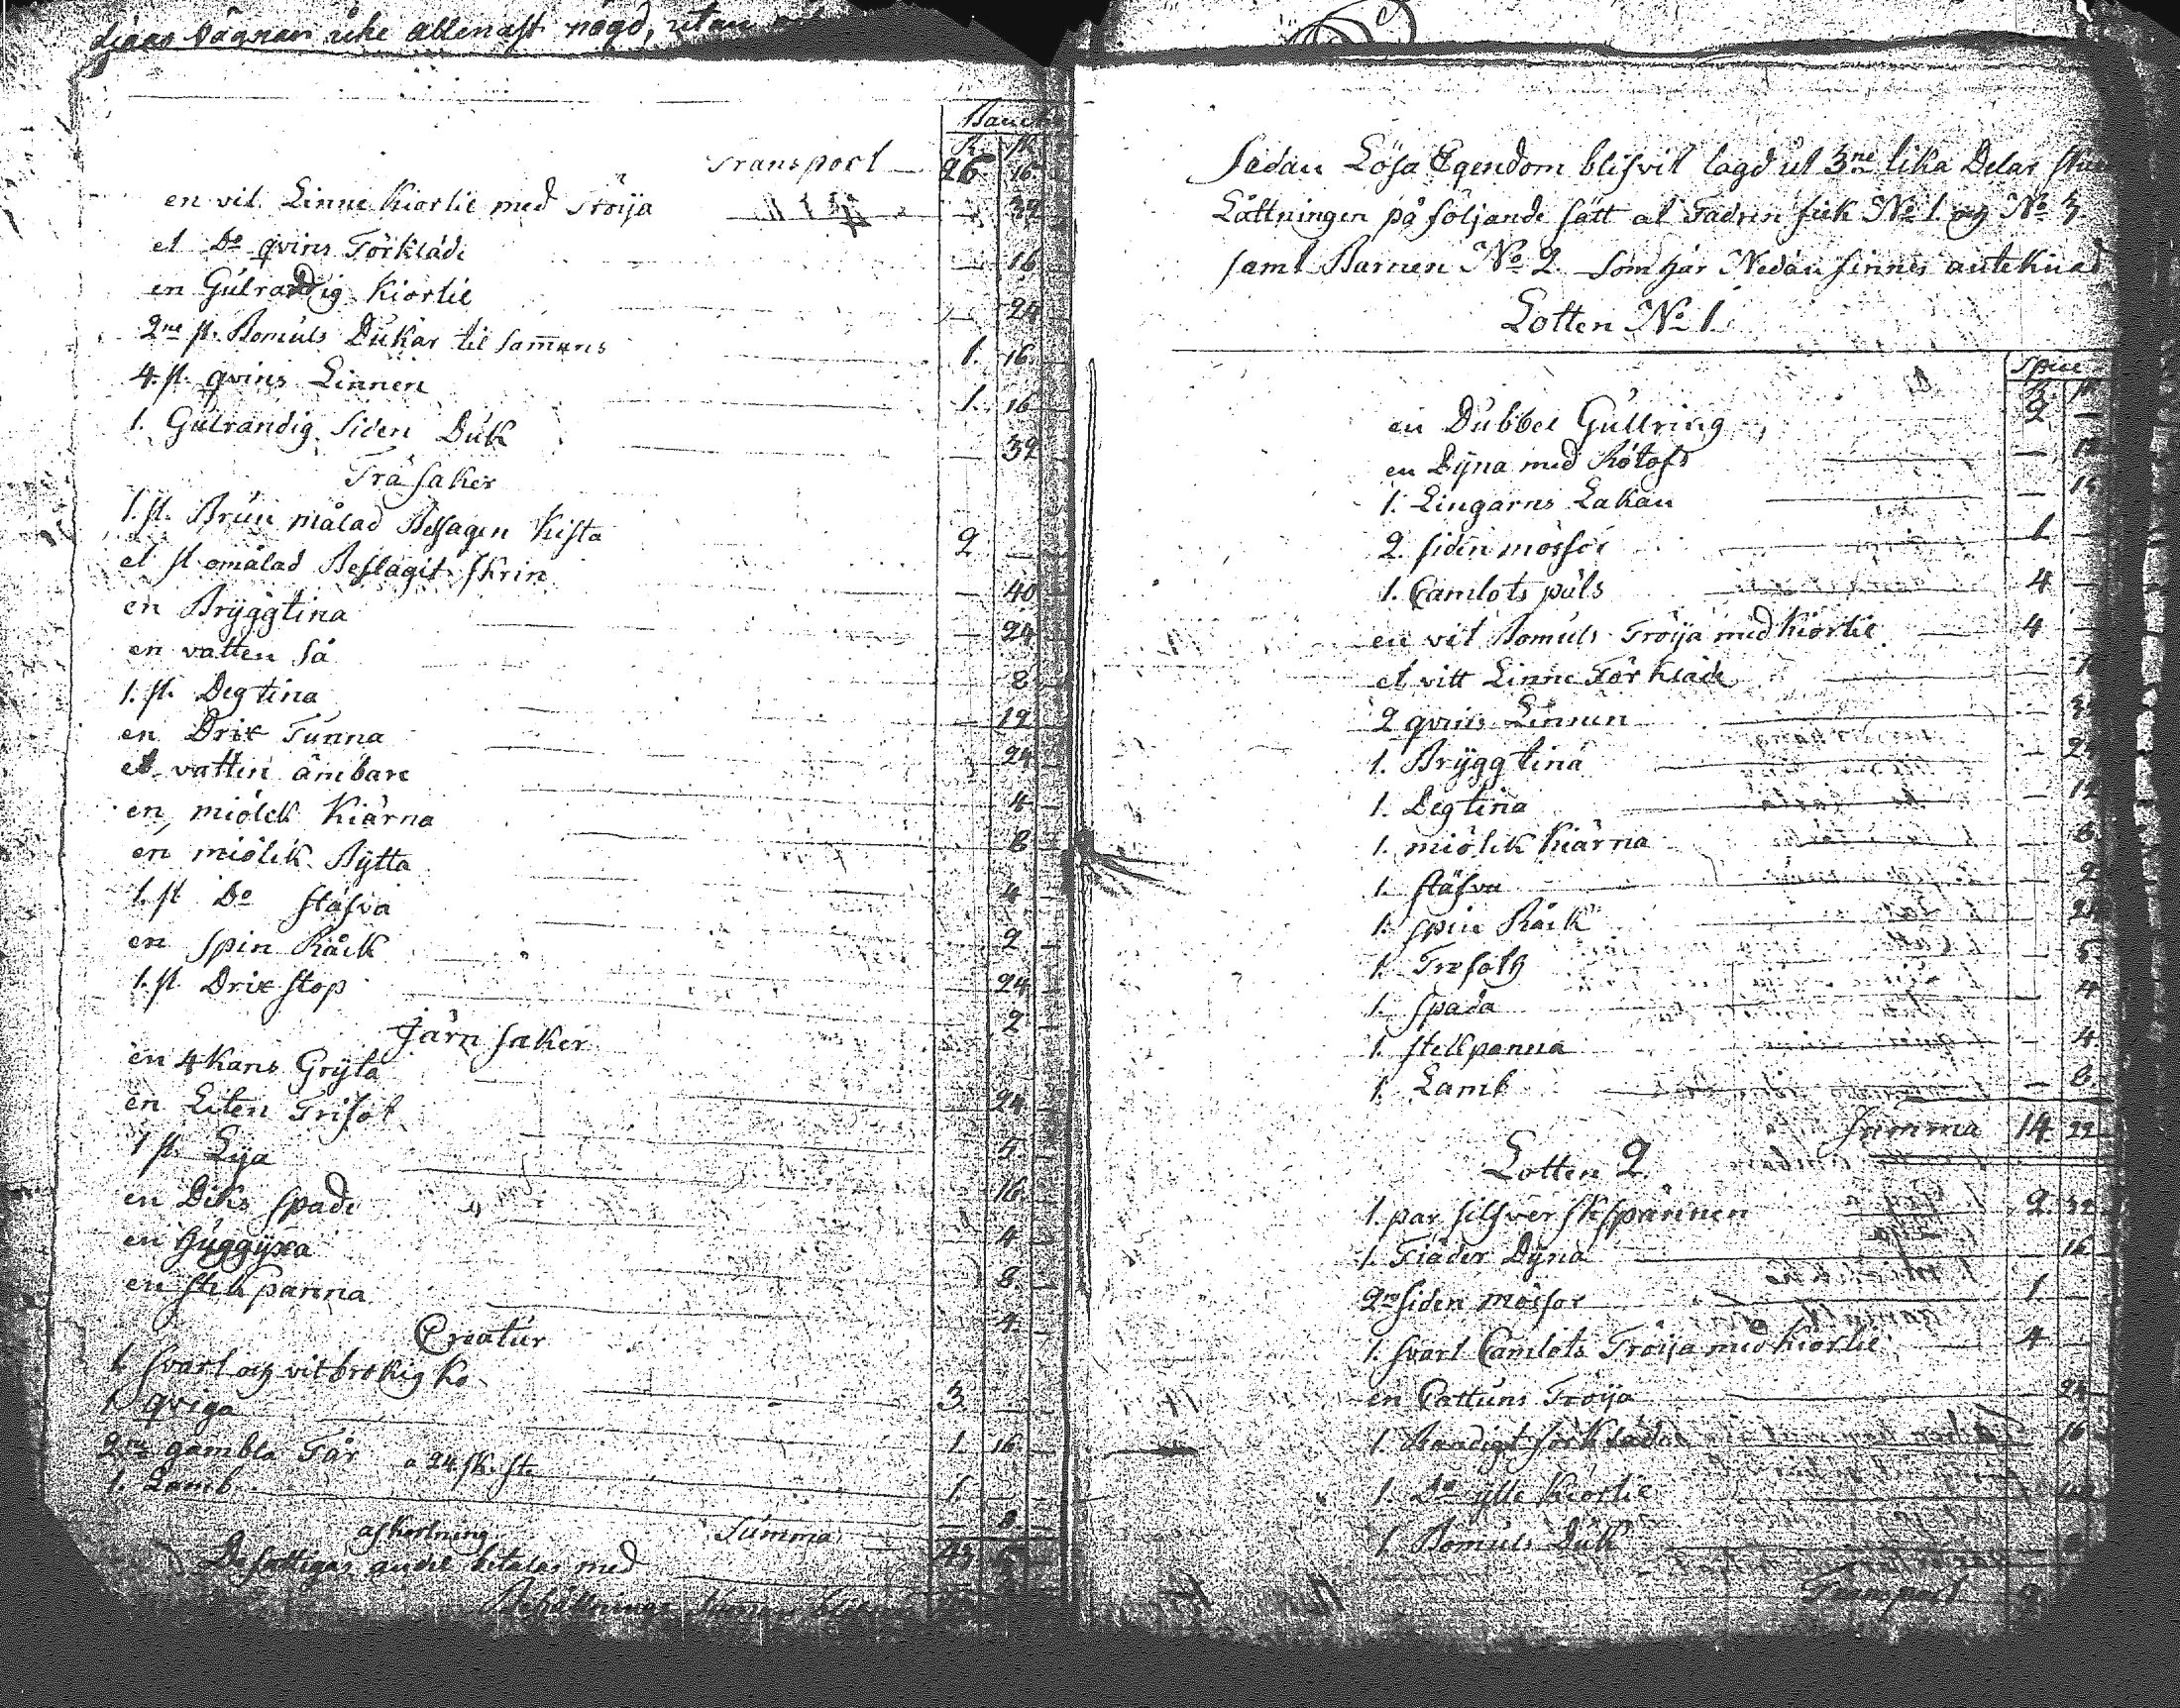 vägnar icke allenast nögd, utan
Banco
R. sk
Transport 26 16
en vit Linne Kiortil med Tröija 32
et Do qvins Förkläde 16
en Gulrandig Kiortil 24
2ne st. Bomuls Dukar til samans 1. 16
4 st. qvins Linnen 1. 16
1. Gulrandig Siden Duk 32
Trä Saker
1. st. Brun målad Beslagen Kista 2
et st omålad Beslagit Skrin 40
en Bryggtina 24
en vatten Så 8
1. st. Degtina 12
en Drix Tunna 24
et vatten ämbare 4
en miölck Kiärna 8
en miölck Bytta 4
1. st Do stäfva 2
en Spin Råck 24
1. st Drix Stop 2
Järn Saker
en 4 kans Gryta 24
en Liten Trifot 5
1 st. Lija 16
en Diks Spade 4
en Huggyxa 8
en stekpanna 4
Creatur
1 svart och vitbrokig Ko 3
1 qviga 1 16
2ne gambla Får a 24 sk. st. 1
1. Lamb 8
Summa 43
afkortning
De fattigas andel betalas med
Sedan Lösa Egendom blifvit lagd ut 3ne lika Delar
Låttningen på följande sätt at Fadren fick No 1. och No 3
samt Barnen No 2. som här Nedan finnes anteknad
Lotten No 1
en Dubbel Gullring 2
en Dyna med
1. Lingarns Lakan
2. siden mössor 1
1. Camlots päls 4
en vit Bomuls Tröija med Kiortil 4
et vitt Linne Förkläde
2 qvins Linnen
1. Bryggtina
1. Degtina 12
1. miölck Kiärna 8
1. stäfva 2
1. Spin Råck 24
1. Trefoth 5
1. Spada 4
1. stekpanna 4
1. Lamb 8
Summa 14 22
Lotten 2.
1. par silfver skospännen 2. 32
1. Fiäder Dyna 16
2ne siden mössor 1.
1. svart Camlots Tröija med Kiortil 4
en Cattuns Tröija 24
1 Randigt förkläde 16
1 Do ylle Kiortil
1 Bomuls Duk
Transport